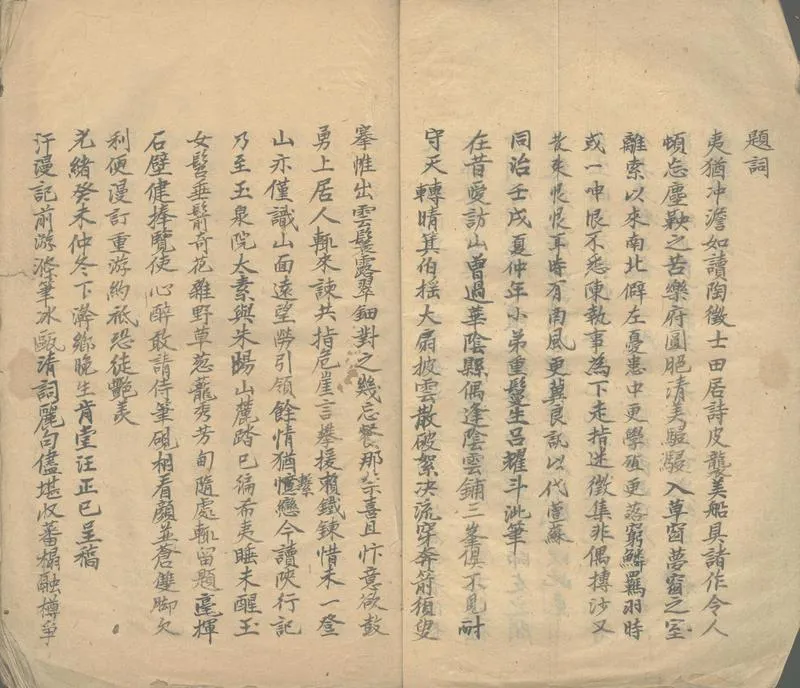 題詞
夷猶冲澹如讀陶徵士田居詩皮襲美船具諸作令人
頓忘塵鞅之苦樂府圓脆清美駸駸入草窗夢窗之室
離索以來南北僻左憂患中更學殖更落窮鱗羈羽時
或一呻恨不悉陳執事為下走指迷徵集非偶摶沙又
散來恨恨耳時有南風更冀良訊以代萱蘇
同治壬戌夏仲年小弟重鬟生呂耀斗泚筆
在昔愛訪山曾過華陰縣偶逢陰雲鋪三峯俱不見耐
守天轉晴箕伯搖大扇披雲散破絮决流穿奔箭須臾
搴帷出雲鬟露翠鈿對之幾忘餐那禁喜且忭竟欲鼓
勇上居人輒來諫共指危崖言攀援賴鐵鍊惜未一登
山亦僅識山面遠望勞引領餘情猶繫戀今讀陝行記
乃至玉泉院太素與朱陽山麓踏已徧希夷睡未醒玉
女髻垂髾奇花雜野草葱蘢秀芳甸隨處輒留題臺揮
石壁健捧覽使心醉敢請侍筆硯相看顏並蒼雙脚欠
利便漫訂重游約祇恐徒艷羨
光緒癸未仲冬下澣鄉晚生肯堂汪正已呈稿
汗漫記前游滌筆冰甌清詞麗句儘堪收蕃榻融樽爭